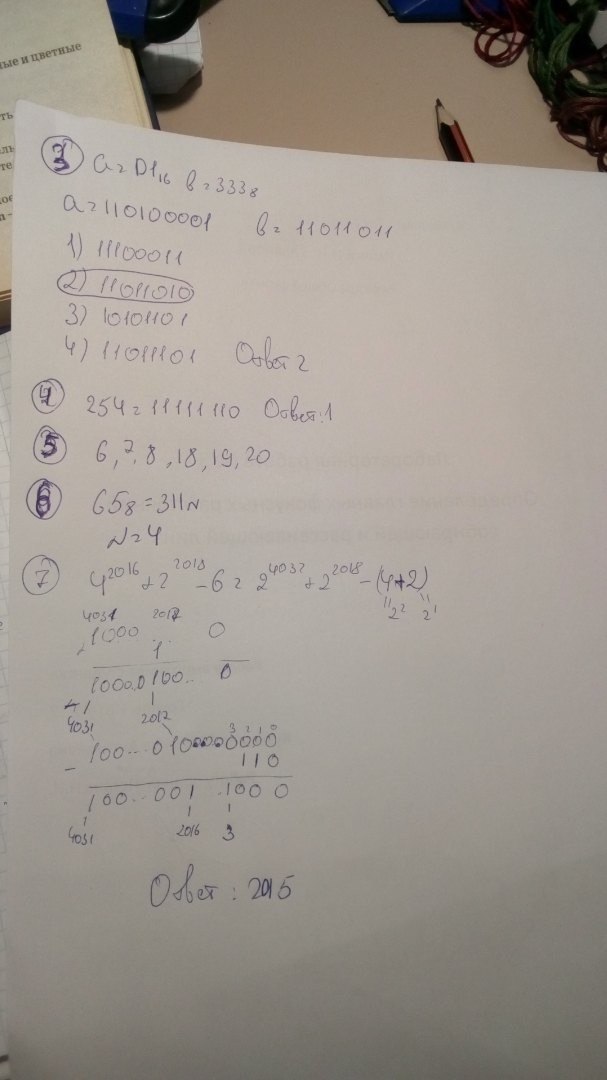 ные и цветные
3 a = D1₁₆ в = 333₈
a = 110100001 в = 11011011
1) 11100011
2) 11011010
3) 10101101
4) 11011101 Ответ 2
4 254 = 11111110 Ответ: 1
5 6, 7, 8, 18, 19, 20
6 65₈ = 311N
N = 4
7 4²⁰¹⁶ + 2²⁰¹⁸ - 6 = 2⁴⁰³² + 2²⁰¹⁸ - (4+2)
2² 2¹
4031 2017
1000 ... 0
+ 1
1000.0100.. 0
4031 2017
3 2 1 0
- 100...010000000000
110
100..001.1000
4031 2016 3
Ответ: 2015